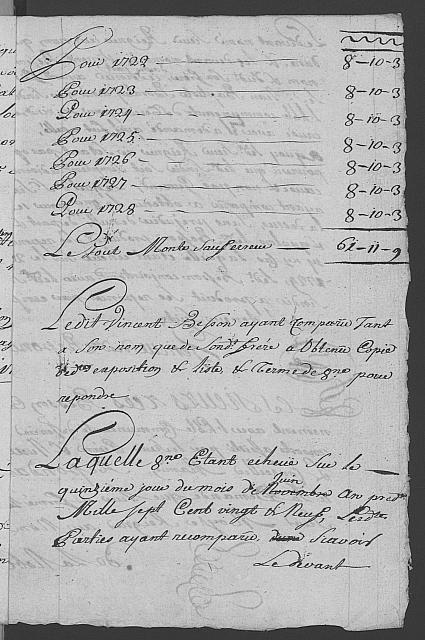 Pour 1722 8-10-3
Pour 1723 8-10-3
Pour 1724 8-10-3
Pour 1725 8-10-3
Pour 1726 8-10-3
Pour 1727 8-10-3
Pour 1728 8-10-3
Le Tout Monte Sauf erreur 61-11-9
Ledit Vincent Besson ayant Comparu Tant
a Son nom que de Sondt frere a Obtenu Copie
exposition & liste & Terme de gne pour
repondre
Laquelle gne Etant echeüe Sur le
quinziéme jour du mois de Novembre Juin An predt
Mille sept Cent vingt & Neuf, Lesdtes
Parties ayant recomparu Scavoir
Le devant